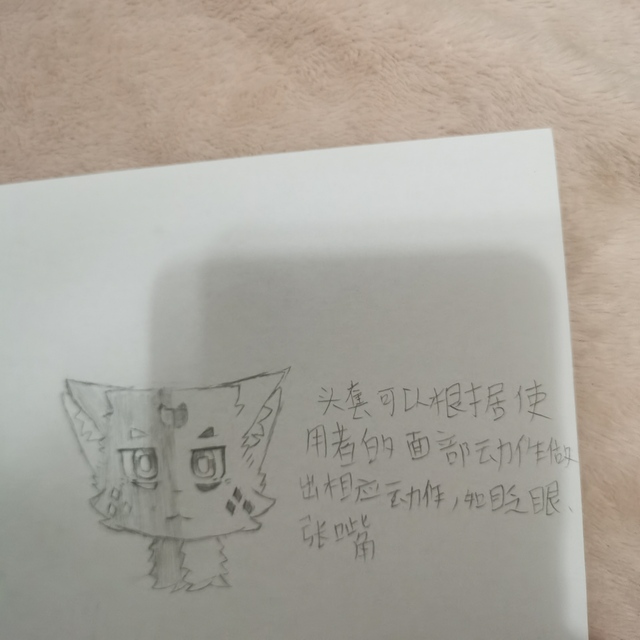 头套可以根据使
用者的面部动作做
出相应动作，如眨眼、
张嘴